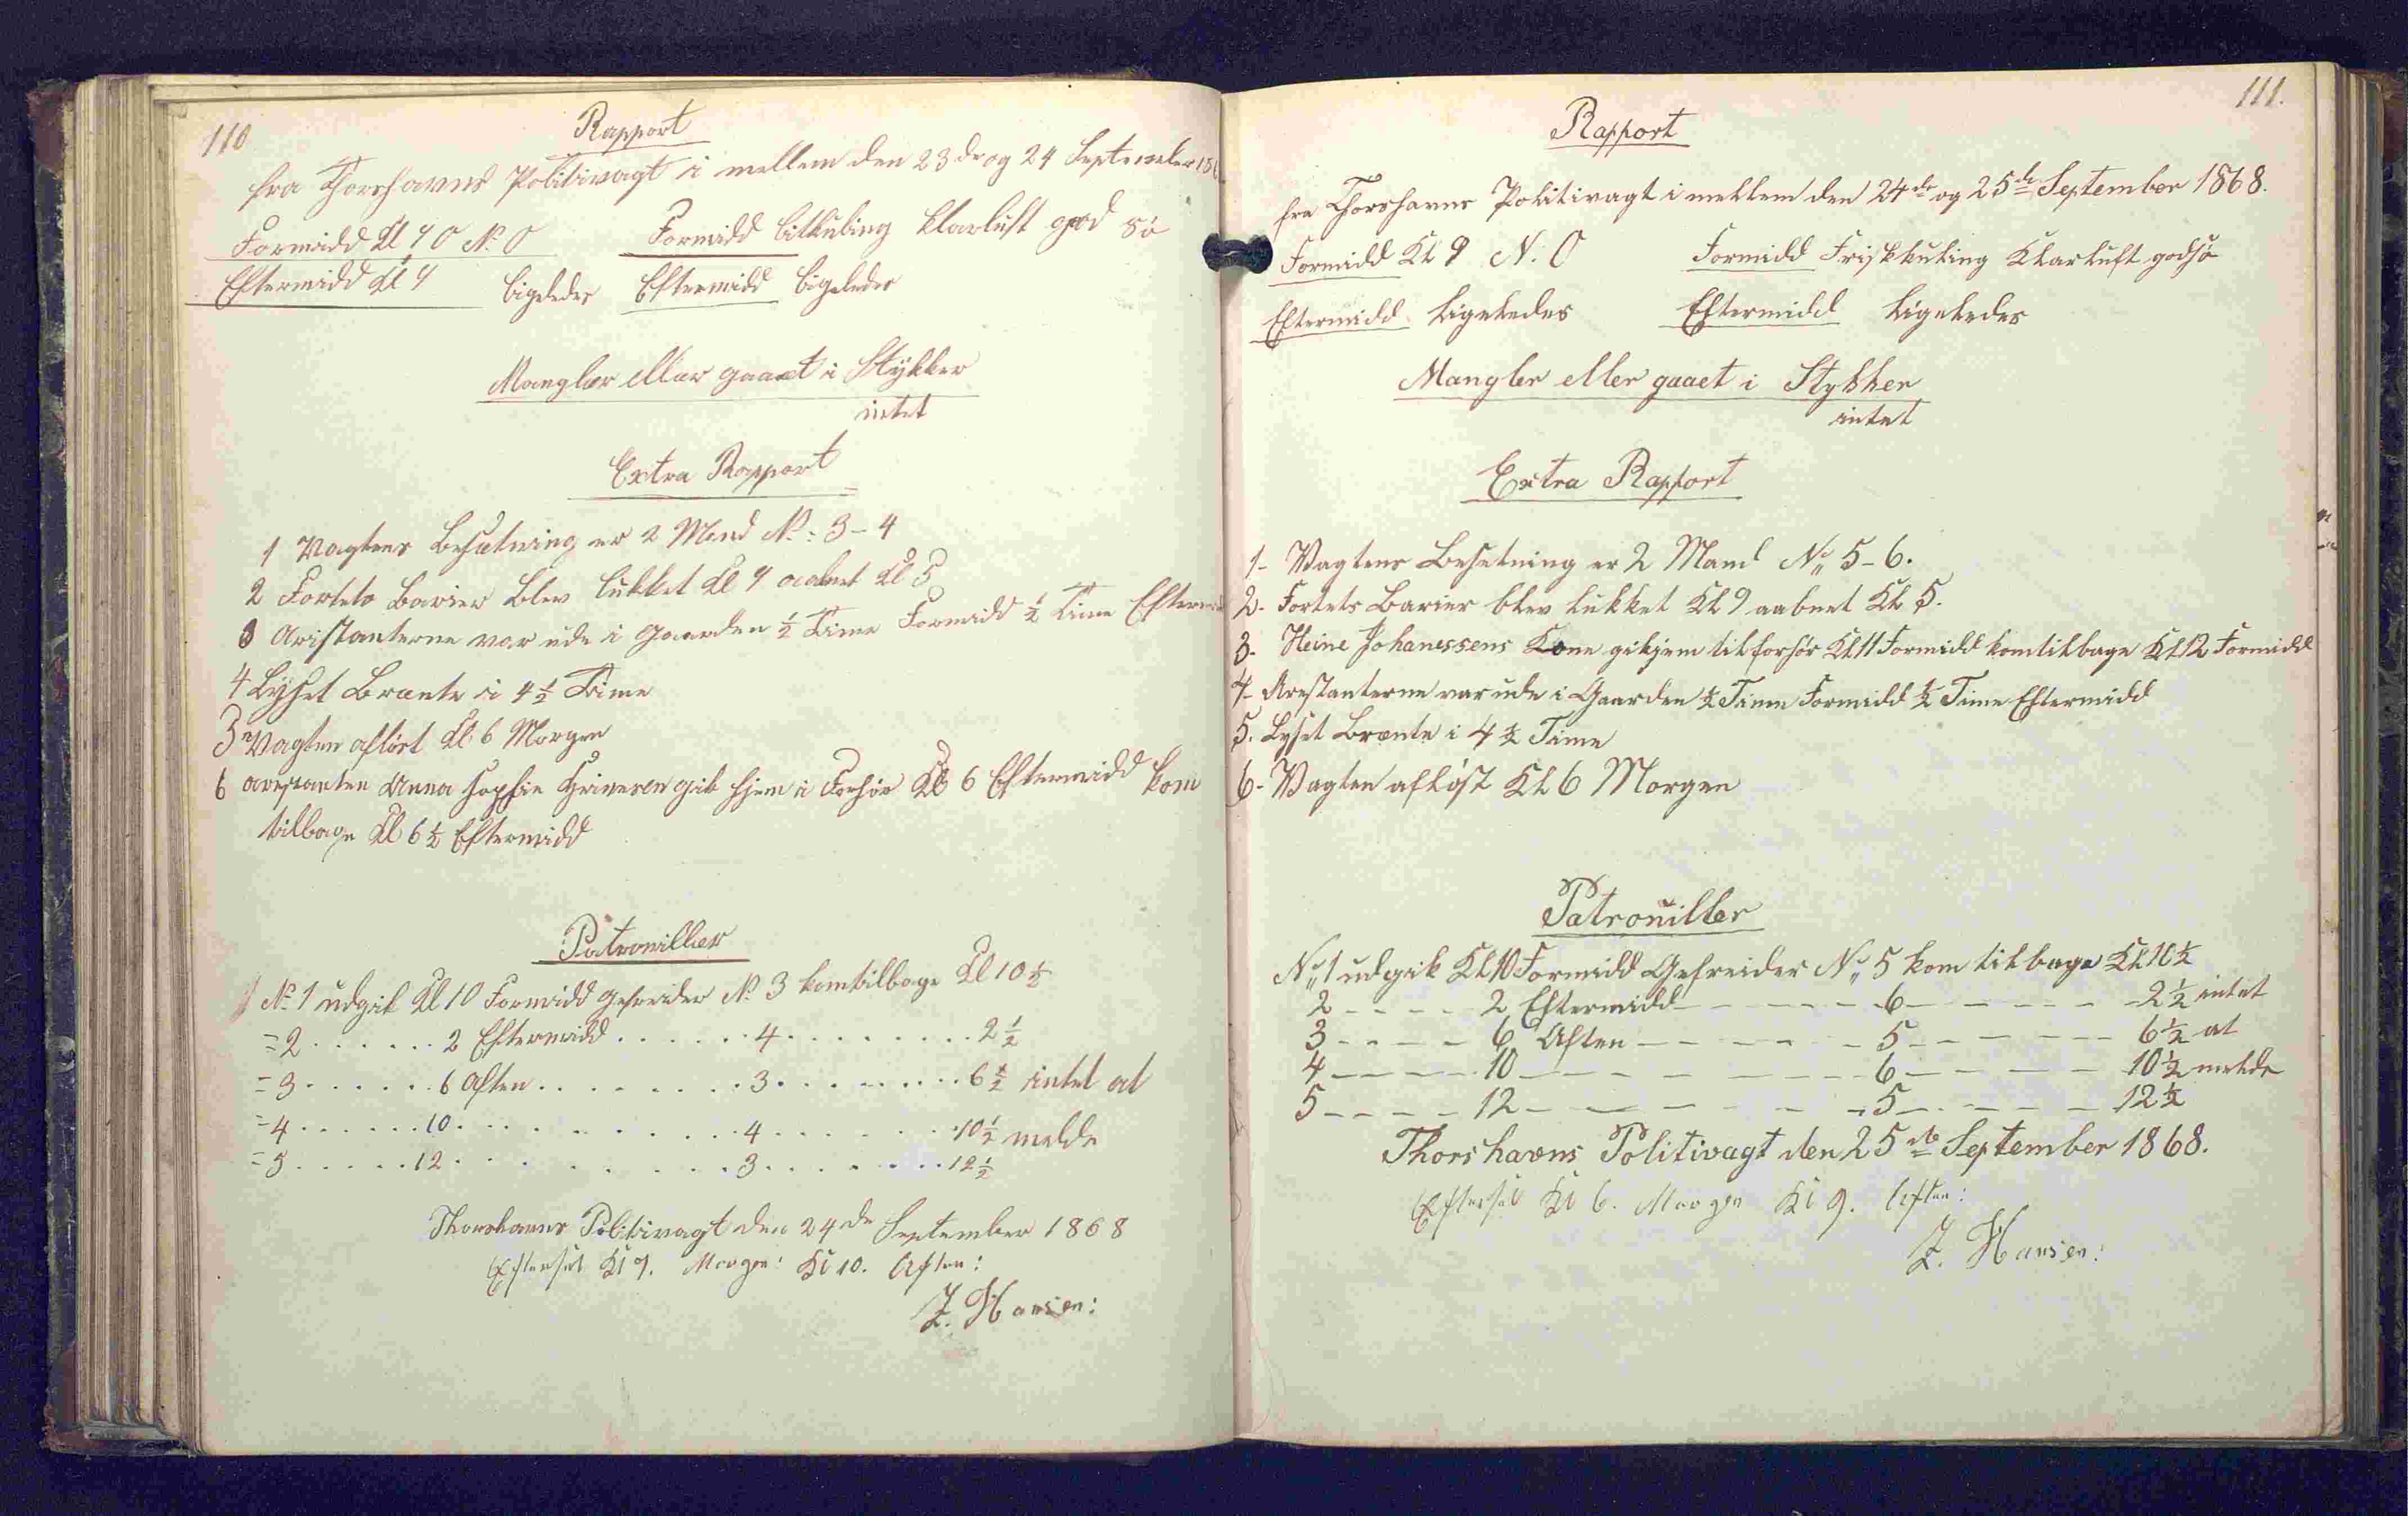 110
Rapport
fra Thorshavns Politivagt i mellem den 23de og 24 September 186
Formidd Kl 9 O N. O Formidd litkuling klarluft god sö
Eftermidd Kl 4 ligeledes Eftermidd ligeledes
Mangler eller gaaet i Stykker
intet
Extra Rapport
1 Vagtens Besætning er 2 Mand No: 3-4
2 Fortets Barier blev lukket Kl 9 aabnet Kl 5
3 Aristanterne var ude i Gaarden ½ Time Formidd ½ Time Efterm
4 Lyset Brænte i 4½ Time
5 Vagten aflöst Kl 6 Morgen
6 arestanten Anna Sophie gik hjem i Forhör Kl 6 Eftermidd kom
tilbage Kl 6½ Eftermidd
Patrouiller
No 1 udgik Kl 10 Formidd Gefreider No 3 kom tilbage Kl 10½
= 2 . . . . . . 2 Eftermidd . . . . . . 4 . . . . . . . . . 2½
= 3 . . . . . . 6 Aften . . . . . . . . 3 . . . . . . . . 6½ intet at
= 4 . . . . . . 10 . . . . . . . . . . 4 . . . . . . . 10½ melde
= 5 . . . . . 12 . . . . . . . . . 3 . . . . . . . 12½
Thorshavns Politivagt den 24de September 1868
Efterset Kl 9. Morgen: Kl 10. Aften:
Z. Hansen:
111.
Rapport
fra Thorshavns Politivagt i mellem den 24de og 25de September 1868.
Formidd Kl 9 N. O Formidd Friskkuling Klarluft godsö
Eftermidd ligeledes Eftermidd ligeledes
Mangler eller gaaet i Stykker
intet
Extra Rapport
1- Vagtens Besetning er 2 Mand No 5-6.
2- Fortets Barier blev lukket Kl 9 aabnet Kl 5.
3- Heine Johanessens Kone gik hjem til forhör Kl 11 Formidd kom tilbage Kl 12 Formidd
4- Arestanterne var ude i Gaarden ½ Time Formidd ½ Time Eftermidd
5. Lyset Brænte i 4½ Time
6- Vagten aflöst Kl 6 Morgen
Patrouiller
No 1 udgik Kl 10 Formidd Gefreider No 5 kom tilbage Kl 10½
2 - - - - 2 Eftermidd - - - - - 6 - - - - - - 2½ intet
3 - - - - - 6 Aften - - - - - - 5 - - - - - - 6½ at
4 - - - - - 10 - - - - - - - - - 6 - - - - - 10½ melde
5 - - - - 12 - - - - - - - 5 - - - - - 12½
Thorshavns Politivagt den 25de September 1868.
Efterset Kl 6. Morgen Kl 9. Aften:
Z. Hansen: